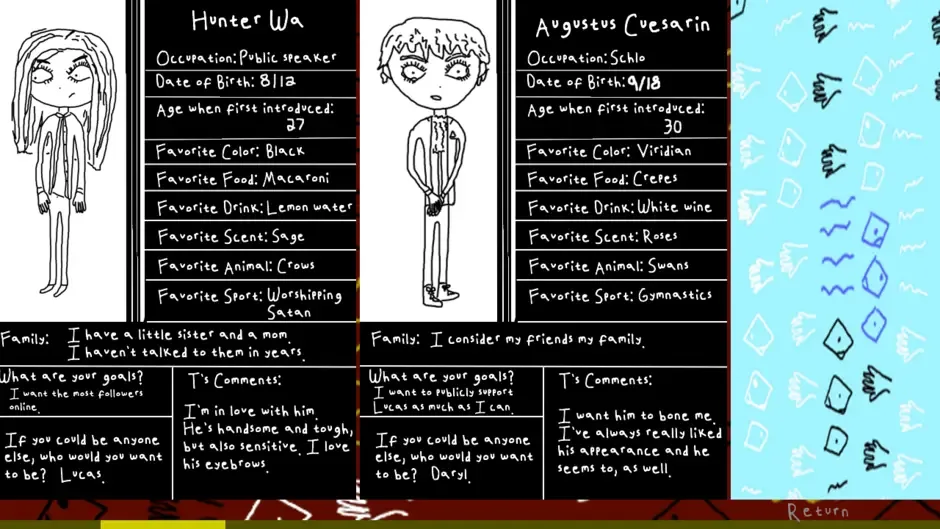 Hunter Wa
Occupation: Public speaker
Date of Birth: 8/12
Age when first introduced:
27
Favorite Color: Black
Favorite Food: Macaroni
Favorite Drink: Lemon water
Favorite Scent: Sage
Favorite Animal: Crows
Favorite Sport: Worshipping
Satan
Family: I have a little sister and a mom.
I haven't talked to them in years.
What are your goals?
I want the most followers
online.
If you could be anyone
else, who would you want
to be? Lucas.
T's Comments:
I'm in love with him.
He's handsome and tough,
but also sensitive. I love
his eyebrows.
Augustus Cuesarin
Occupation: Schlo
Date of Birth: 9/18
Age when first introduced:
30
Favorite Color: Viridian
Favorite Food: Crepes
Favorite Drink: White wine
Favorite Scent: Roses
Favorite Animal: Swans
Favorite Sport: Gymnastics
Family: I consider my friends my family.
What are your goals?
I want to publicly support
Lucas as much as I can.
If you could be anyone
else, who would you want
to be? Daryl.
T's Comments:
I want him to bone me.
I've always really liked
his appearance and he
seems to, as well.
Return